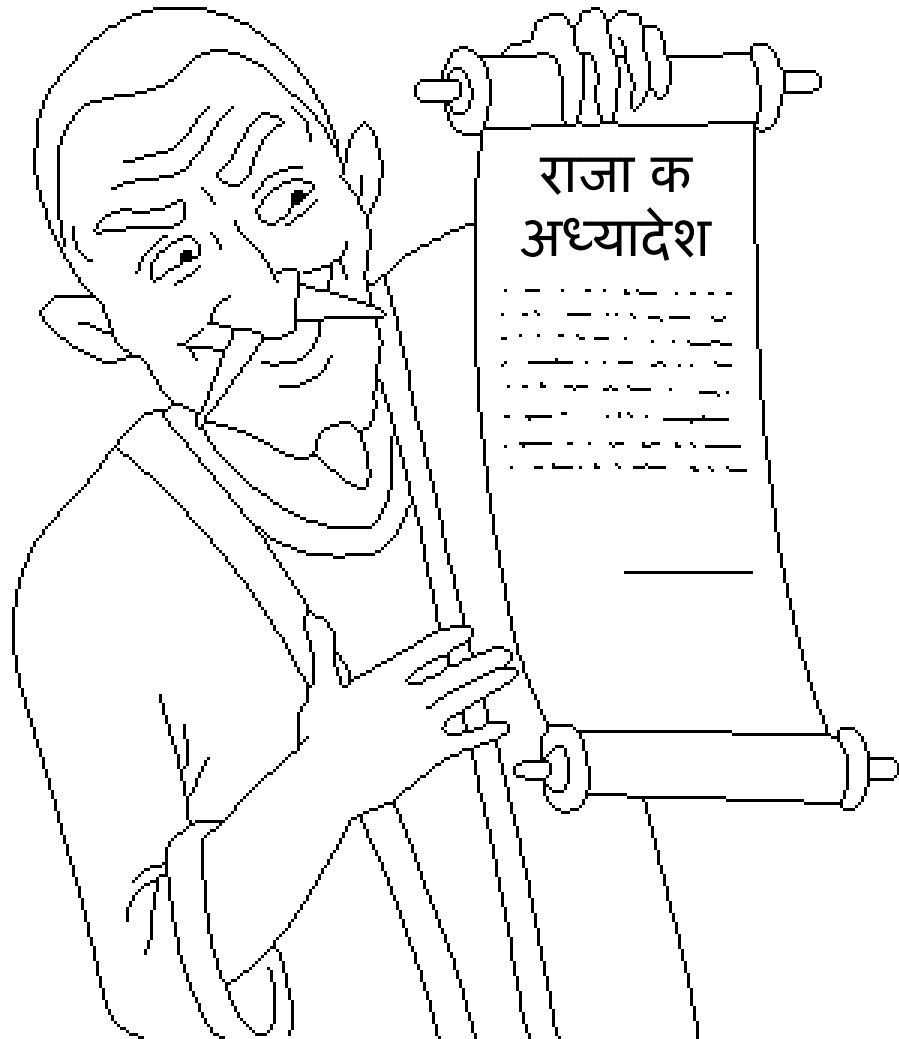 राजा क
अध्यादेश